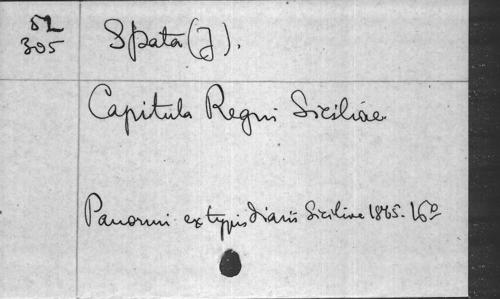 52
305
Spata (J).
Capitula Regni Siciliae
Panormi ex typis diarii Siciliae 1865. 16º